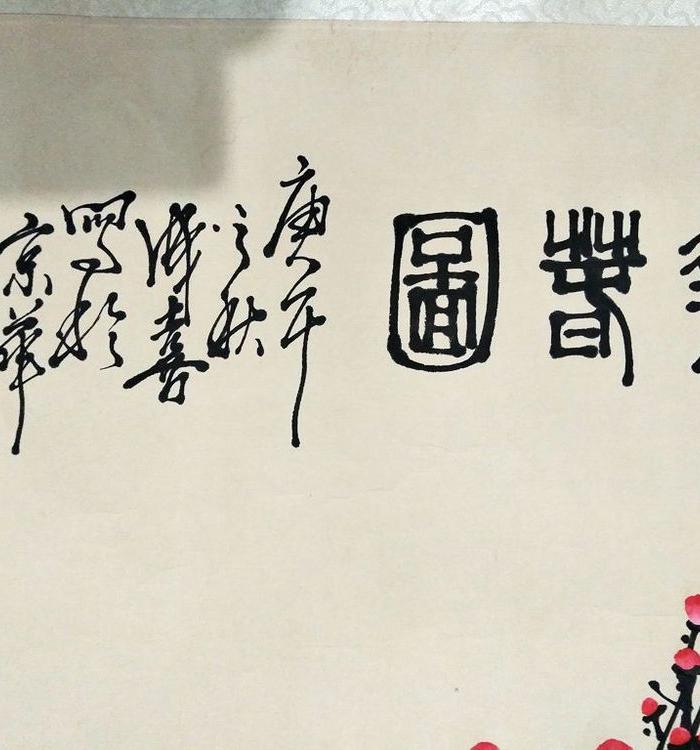 春圖
庚午
之秋
成喜
寫於
京華